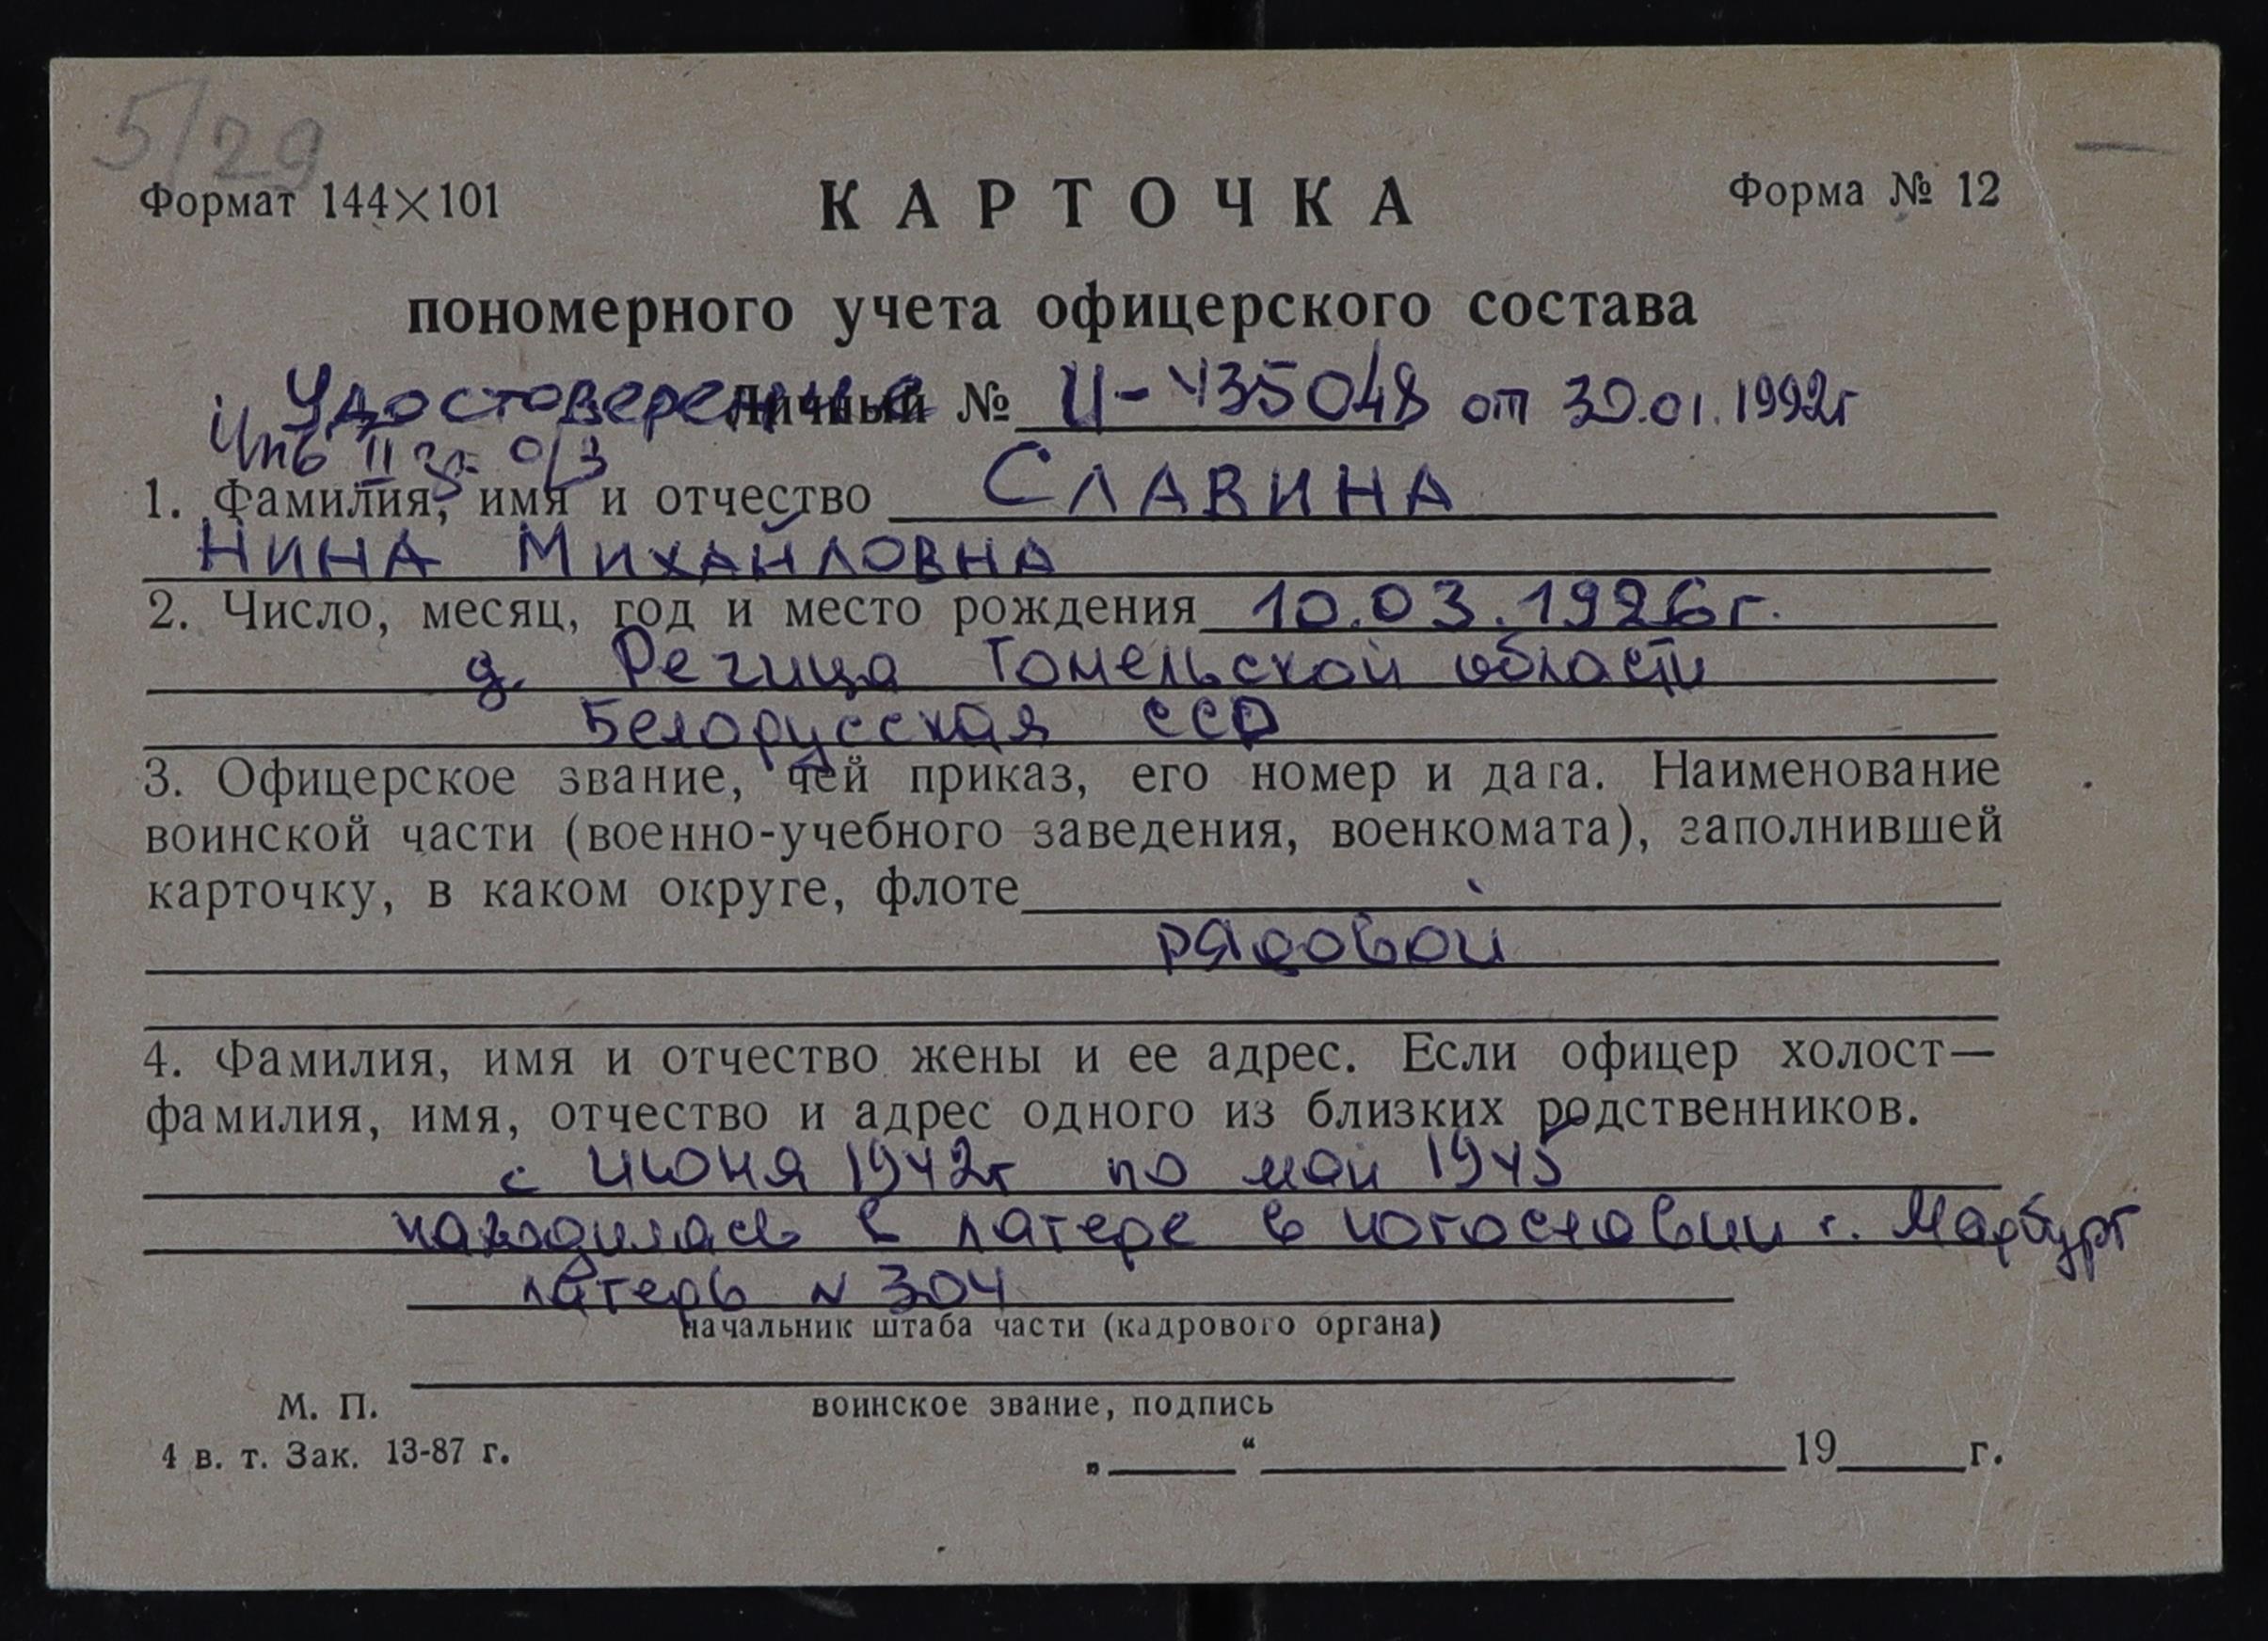 5/29
Формат 144×101 КАРТОЧКА Форма № 12
пономерного учета офицерского состава
Удостоверение Личный № И-435048 от 30.01.1992г
II гр. о/з
1. Фамилия, имя и отчество СЛАВИНА
НИНА МИХАЙЛОВНА
2. Число, месяц, год и место рождения 10.03.1926г.
д. Речица Гомельской области
Белорусская ССР
3. Офицерское звание, чей приказ, его номер и дата. Наименование
воинской части (военно-учебного заведения, военкомата), заполнившей
карточку, в каком округе, флоте
рядовой
4. Фамилия, имя и отчество жены и ее адрес. Если офицер холост—
фамилия, имя, отчество и адрес одного из близких родственников.
с июня 1942г по май 1945
находилась в лагере в Югославии г. Марбург
лагерь N 304
начальник штаба части (кадрового органа)
М. П. воинское звание, подпись
4 в. т. Зак. 13-87 г. „ “ 19 г.